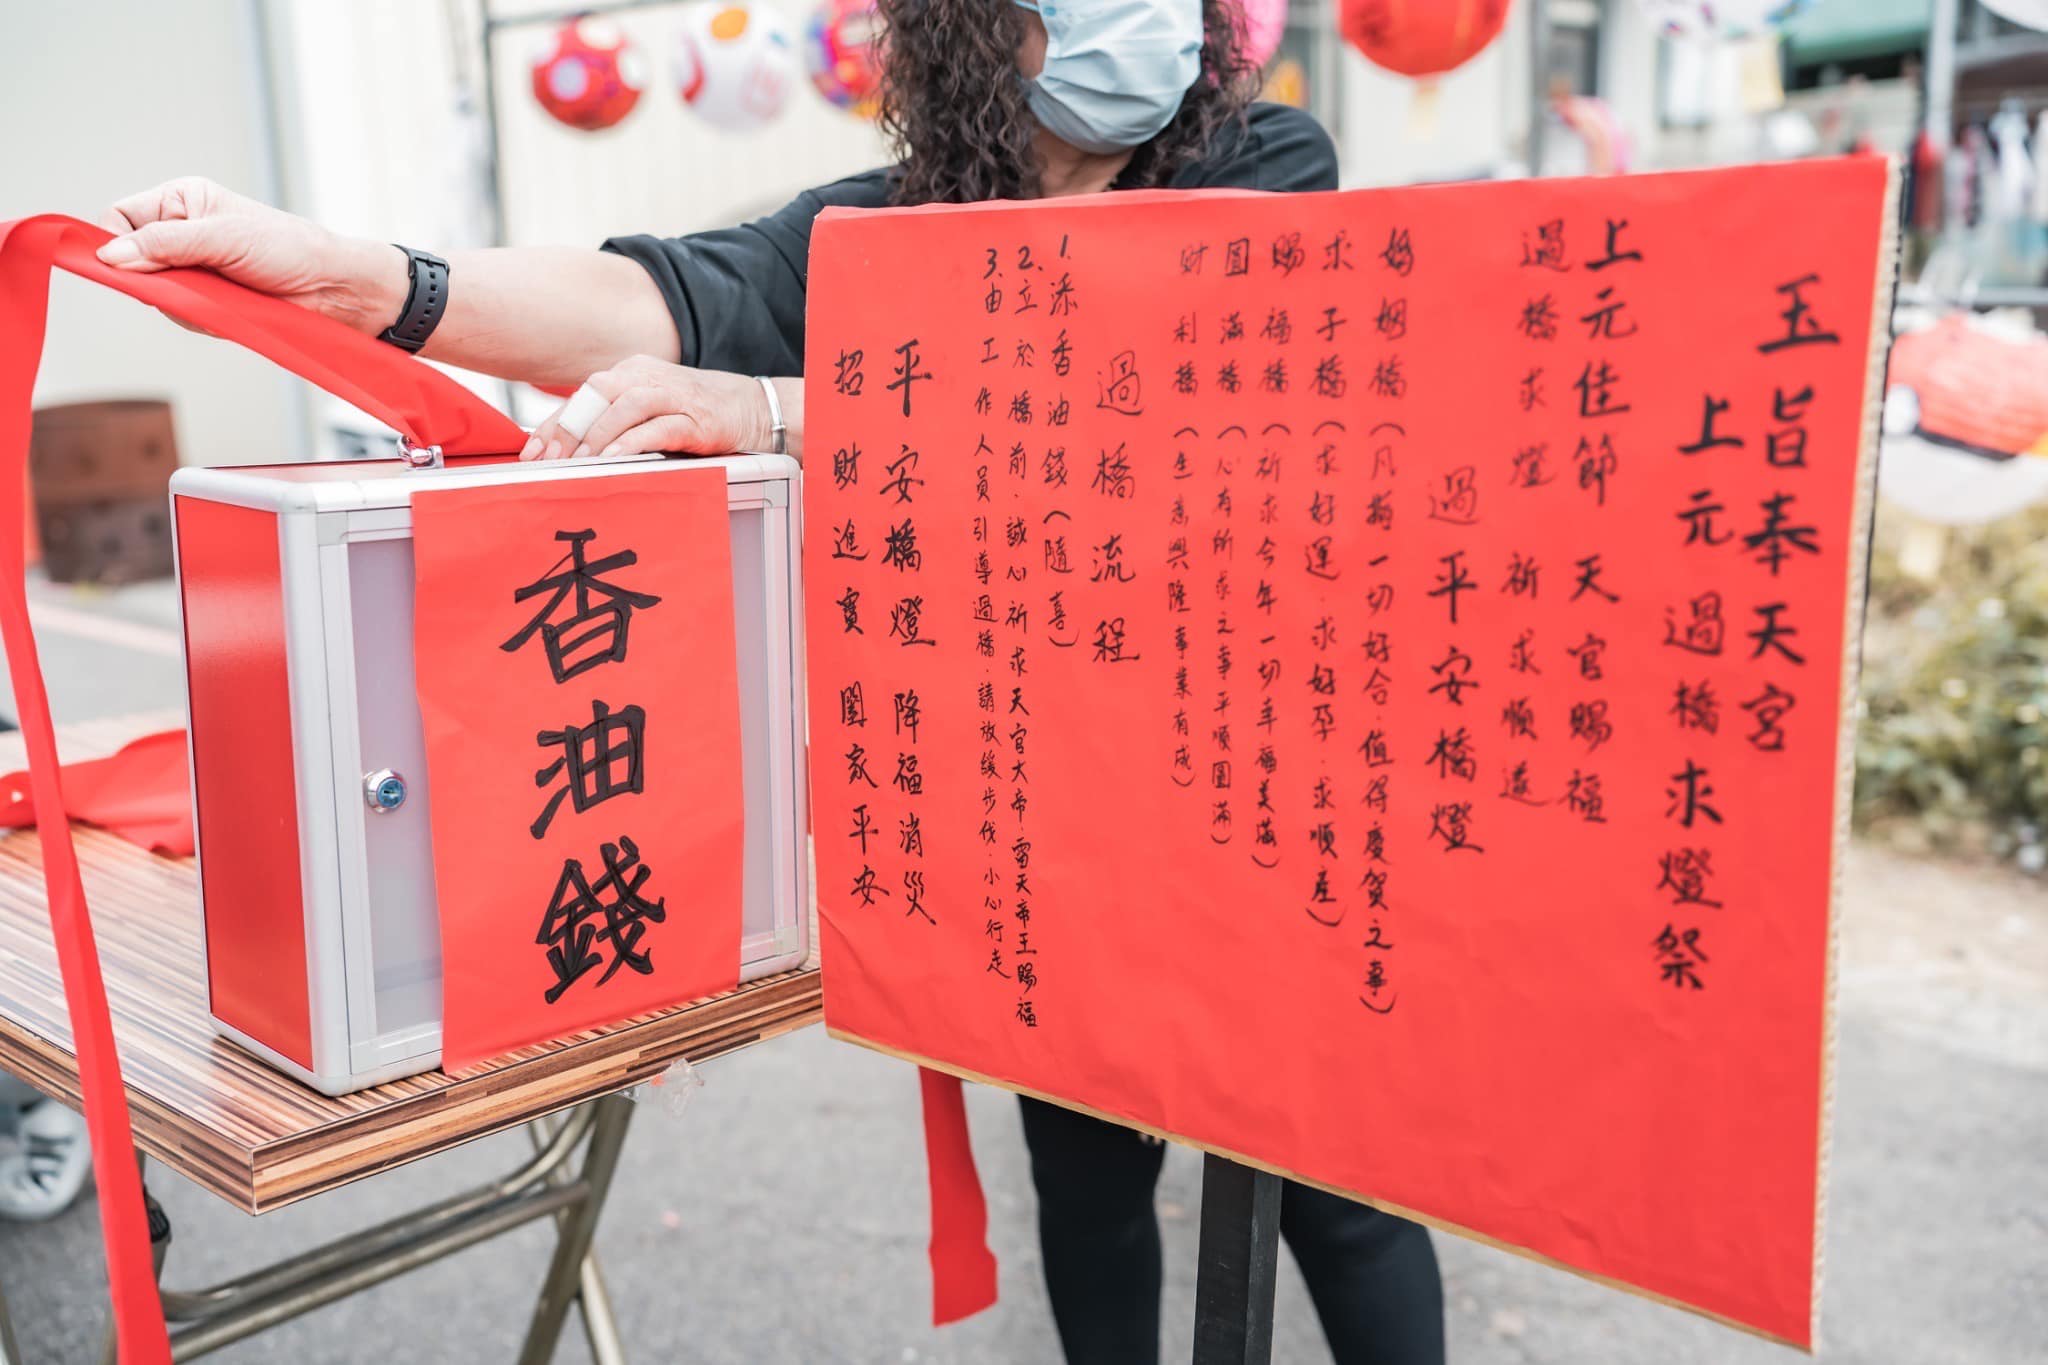 玉旨奉天宮
上元過橋求燈祭
上元佳節 天官賜福
過橋求燈 祈求順遂
過平安橋燈
婚姻橋(凡指一切好合.值得慶賀之事)
求子橋(求好運.求好孕.求順產)
賜福橋(祈求今年一切幸福美滿)
圓滿橋(心有所求之事平順圓滿)
財利橋(生意興隆事業有成)
過橋流程
1.添香油錢(隨喜)
2.立於橋前.誠心祈求天官大帝.雷天帝王賜福
3.由工作人員引導過橋.請放緩步伐.小心行走
平安橋燈 降福消災
招財進寶 闔家平安
香油錢